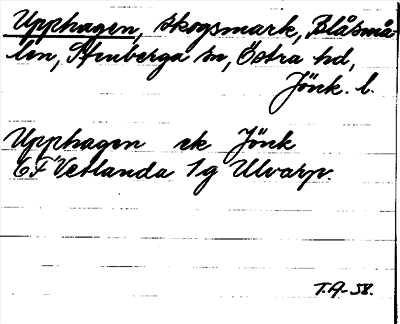 Upphagen, skogsmark, Blåsmå-
len, Stenberga sn, Östra hd,
Jönk. l.
Upphagen ek Jönk
EF Vetlanda 1g Ulvarp.
T.A-58.